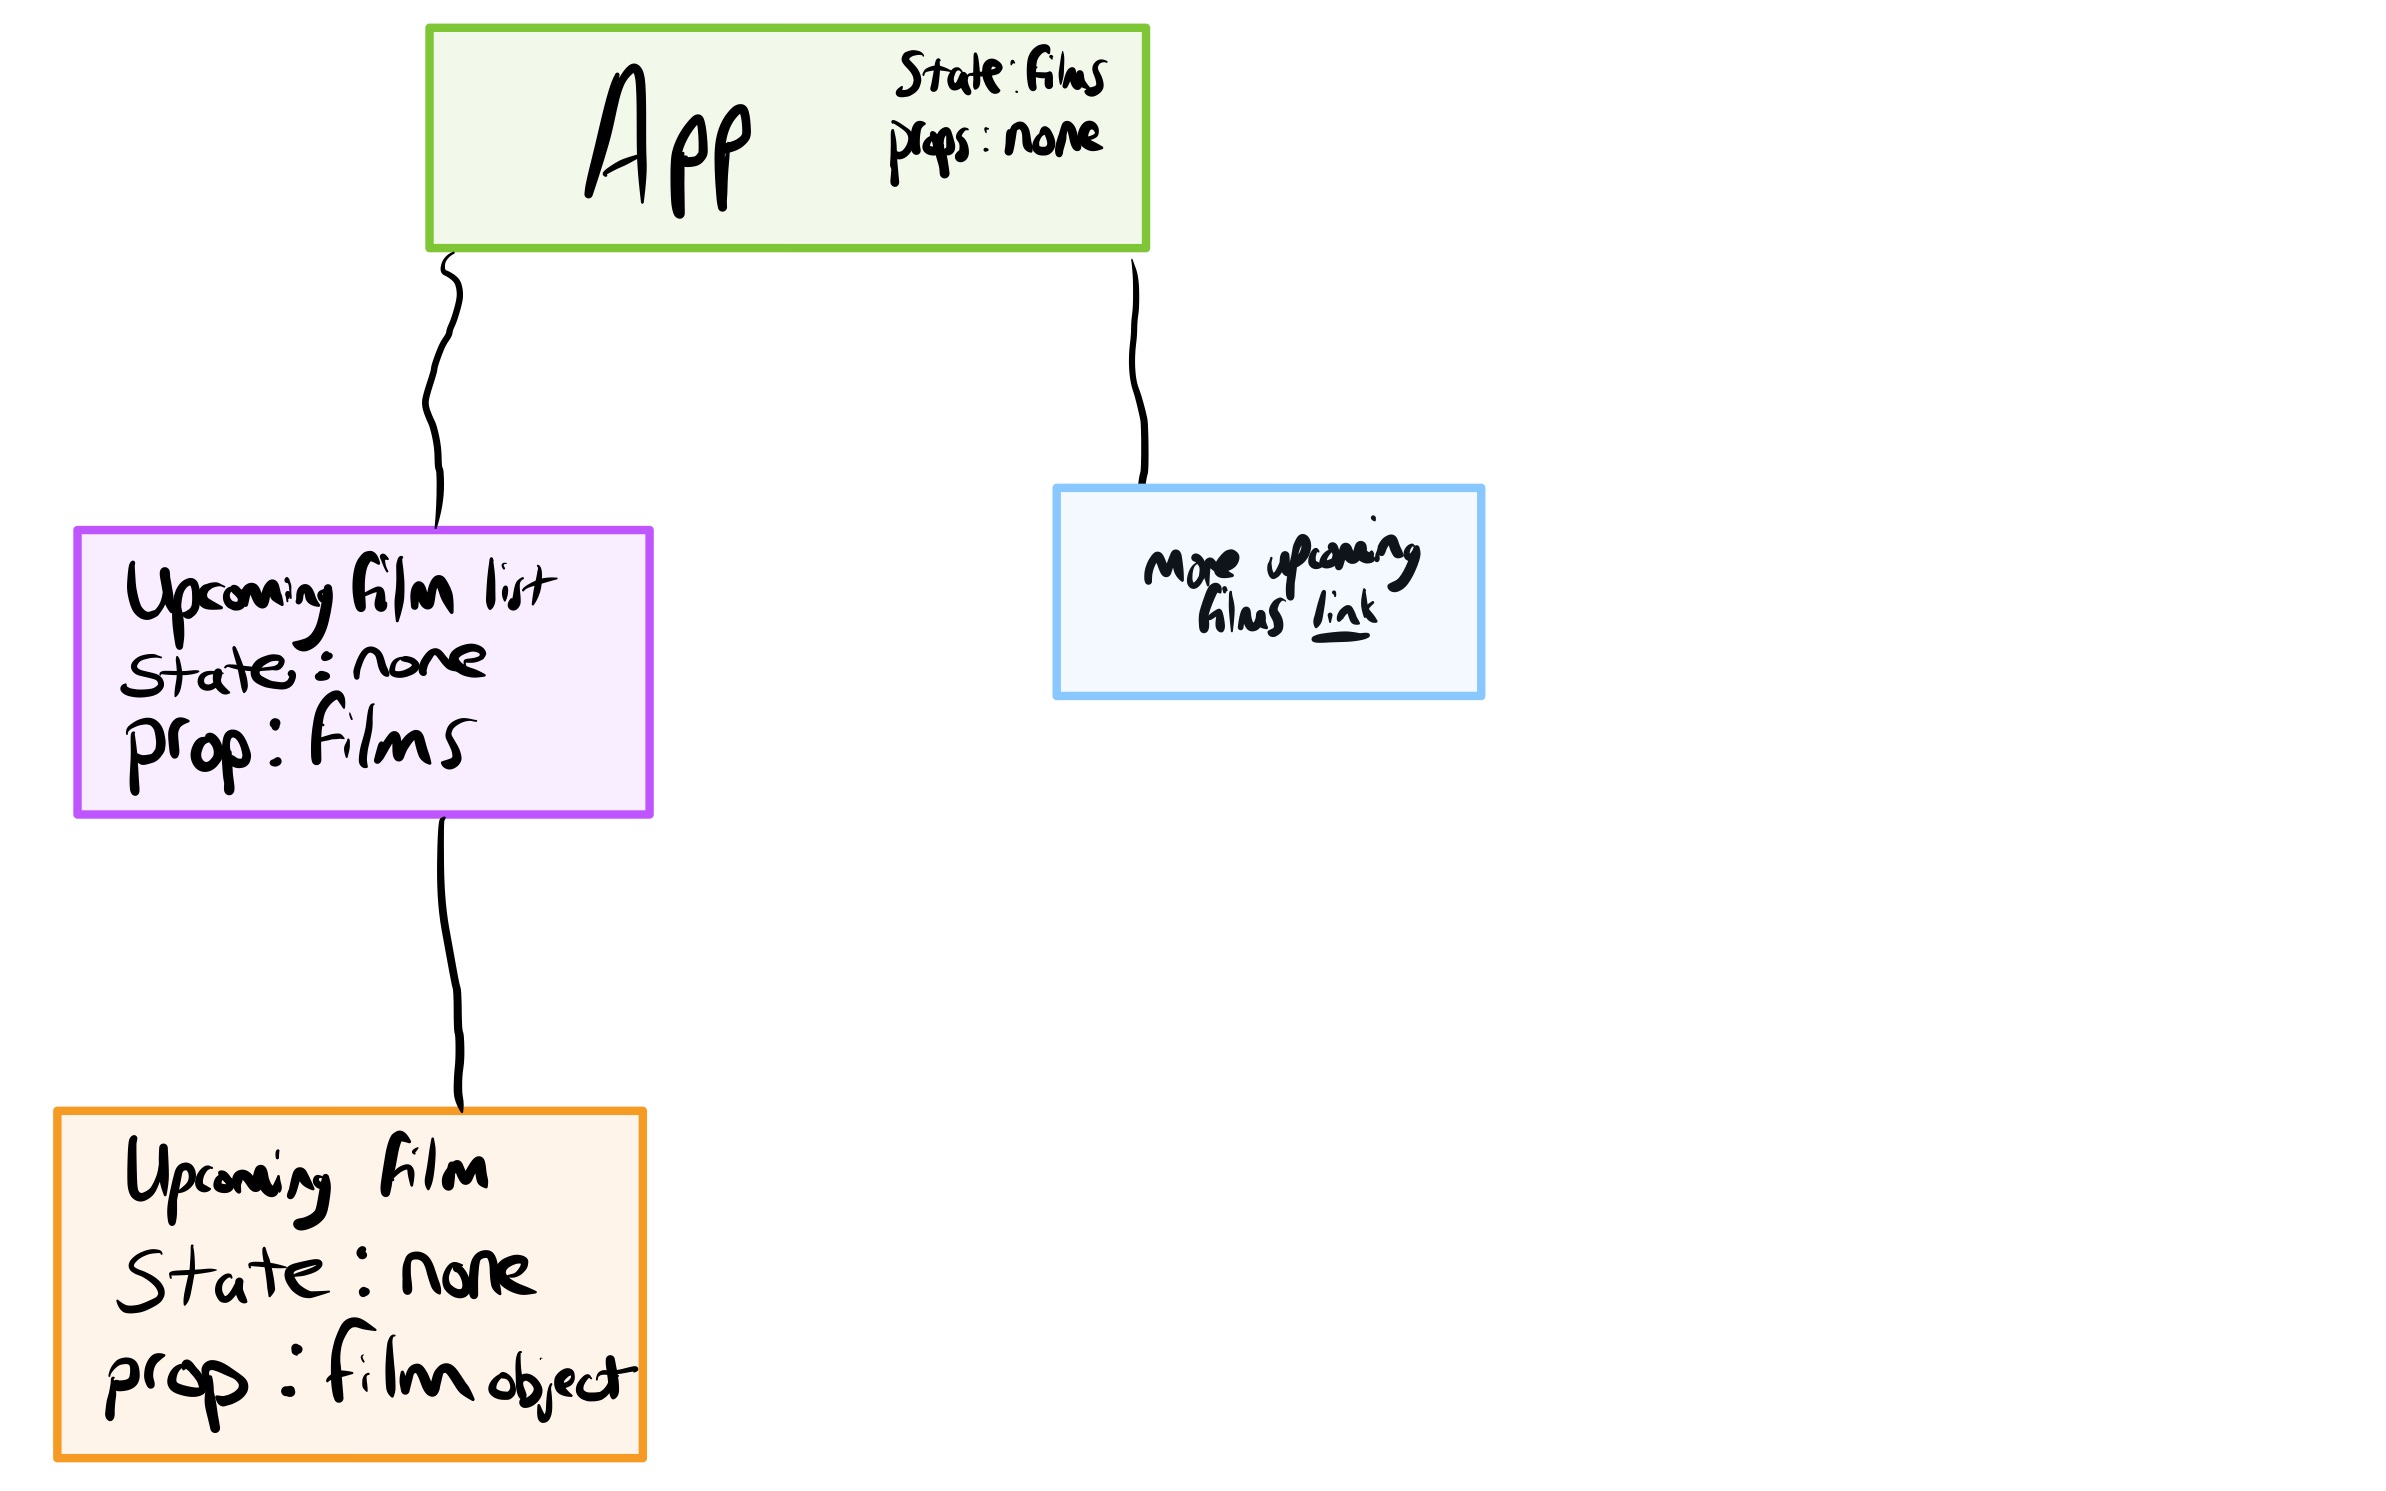 App
State: films
props: none
Upcoming film list
state: none
prop: films
more upcoming
films link
Upcoming film
State: none
prop: film object